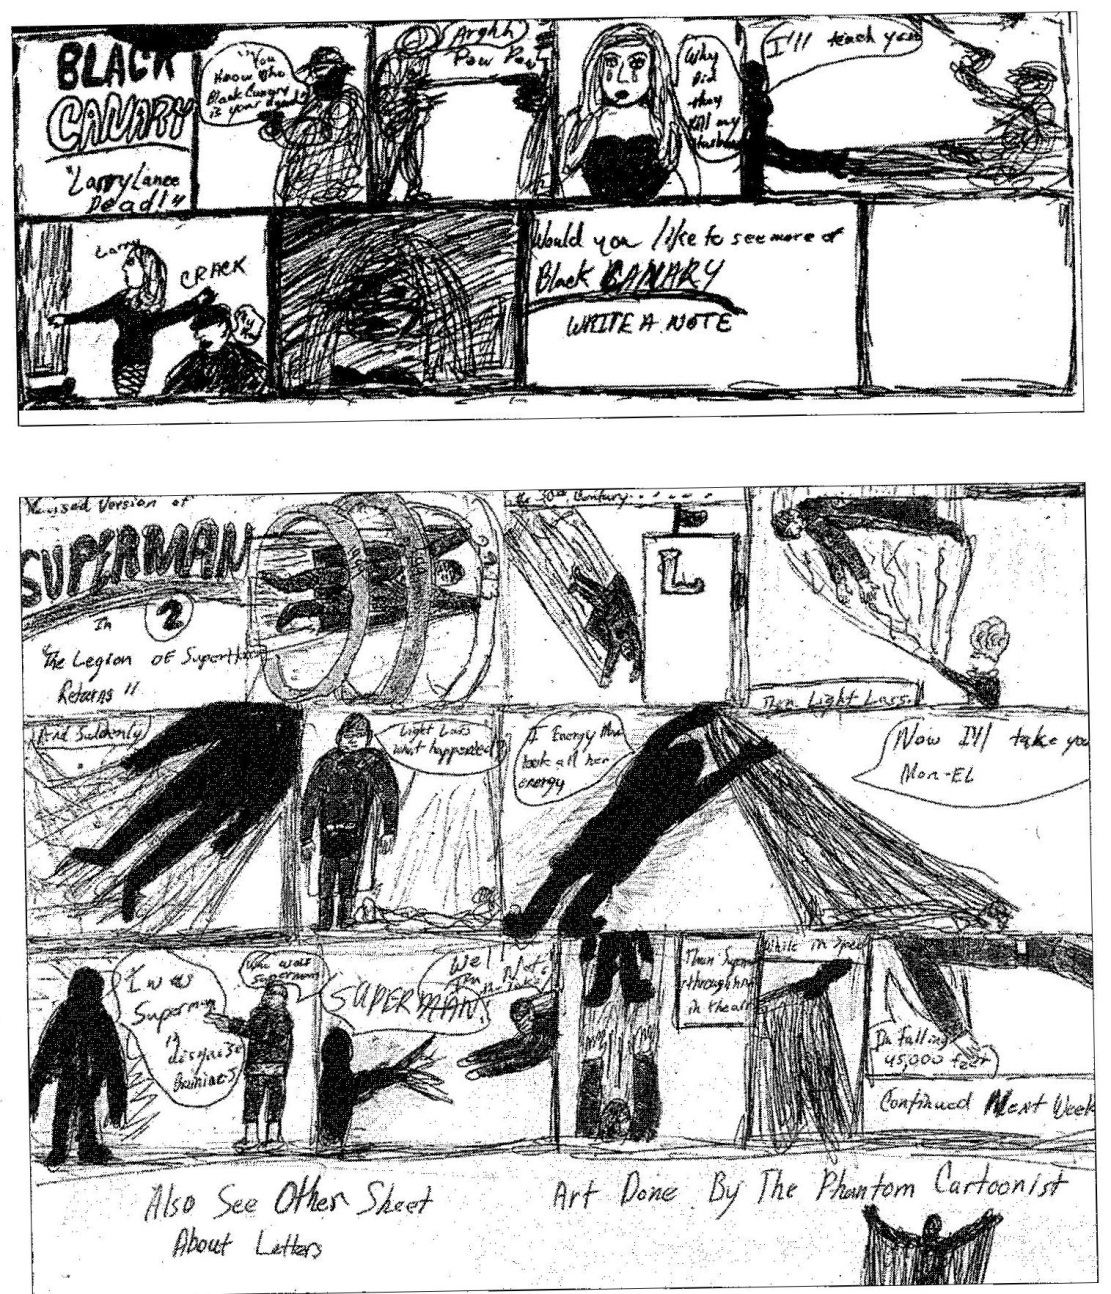 BLACK
CANARY
"Larry Lance
Dead!"
You
Know who
Black Canary
is your dead
Arghh
Pow Pow
Why
Did
they
kill my
Husband
I'll teach you
Larry
CRACK
My
Would you like to see more of
Black CANARY
WRITE A NOTE
Revised Version of
SUPERMAN
2
In
"The Legion OF Super
Returns"
the 30th Century.....
L
Then Light Lass
And Suddenly
Light Lass
what happended?
I Energy Man
took all her
energy
Now I'll take you
Mon-EL
I was
Superman
in
disguise
Brainiac 5
Who was
Superman
SUPERMAN
We'll
Not
Then
through
in the air
While in
I'm falling
45,000 feet
Continued Next Week
Also See Other Sheet
About Letters
Art Done By The Phantom Cartoonist